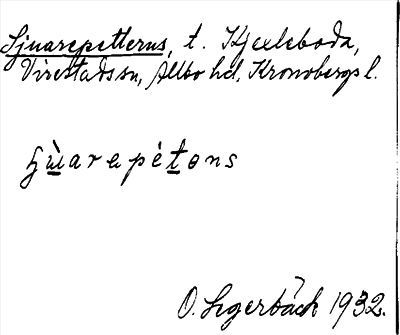 Sjuarepetterus, t. Kjexleboda,
Virestads sn, Allbo hd, Kronobergs l.
ɧùarepétens
O. Segerbäck 1932.